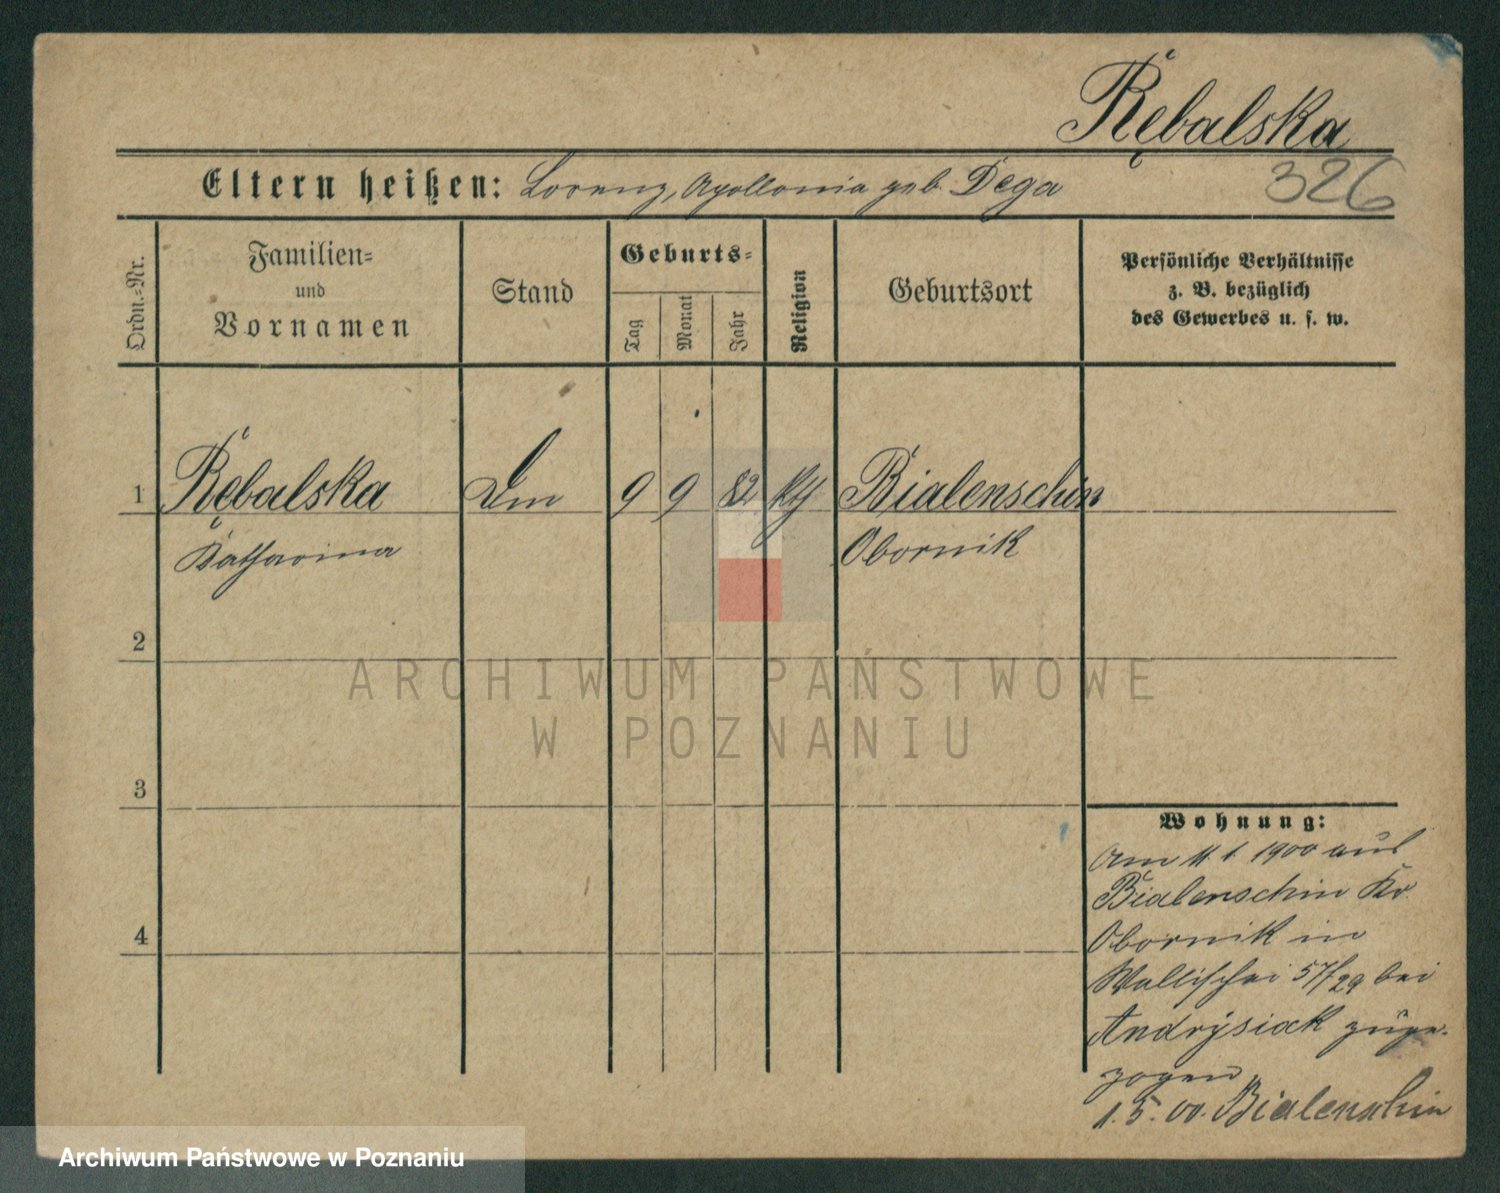 Rębalska
326
Eltern heißen: Lorenz, Apollonia geb. Dega
Ordn.-Nr.
Familien-
und
Vornamen
Stand
Geburts-
Tag
Monat
Jahr
Religion
Geburtsort
Persönliche Verhältnisse
z. B. bezüglich
des Gewerbes u. s. w.
1 Rębalska 9 9 82 kth Bialenschin
Katharina Obornik
2
3
4
Wohnung:
Am 11 1 1900 aus
Bialenschin Kr.
Obornik in
Wallischei 57/29 bei
Andrysiak zuge-
zogen
1. 5. 00. Bialenschin
ARCHIWUM PAŃSTWOWE
W POZNANIU
Archiwum Państwowe w Poznaniu